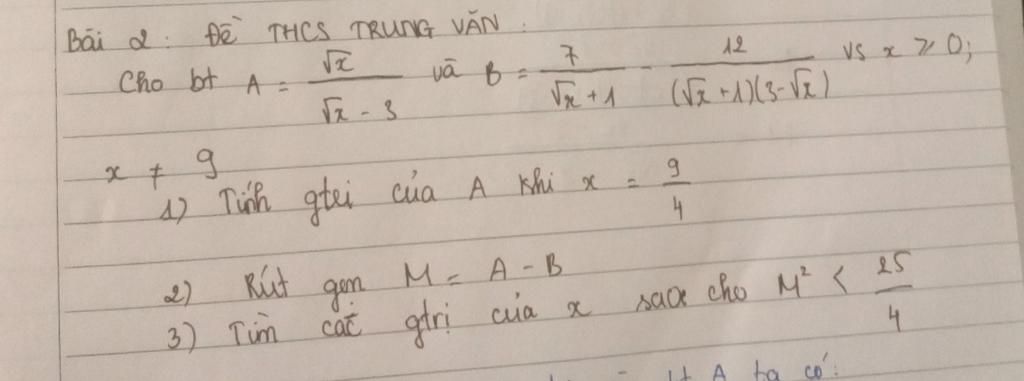 Bài 2: Đề THCS TRUNG VĂN.
Cho bt A = √x / (√x - 3) và B = 7 / (√x + 1) - 12 / ((√x + 1)(3 - √x)) vs x ≥ 0;
x ≠ 9
1) Tính gtrị của A khi x = 9/4
2) Rút gọn M = A - B
3) Tìm các gtrị của x sao cho M² < 25/4
A ta có: